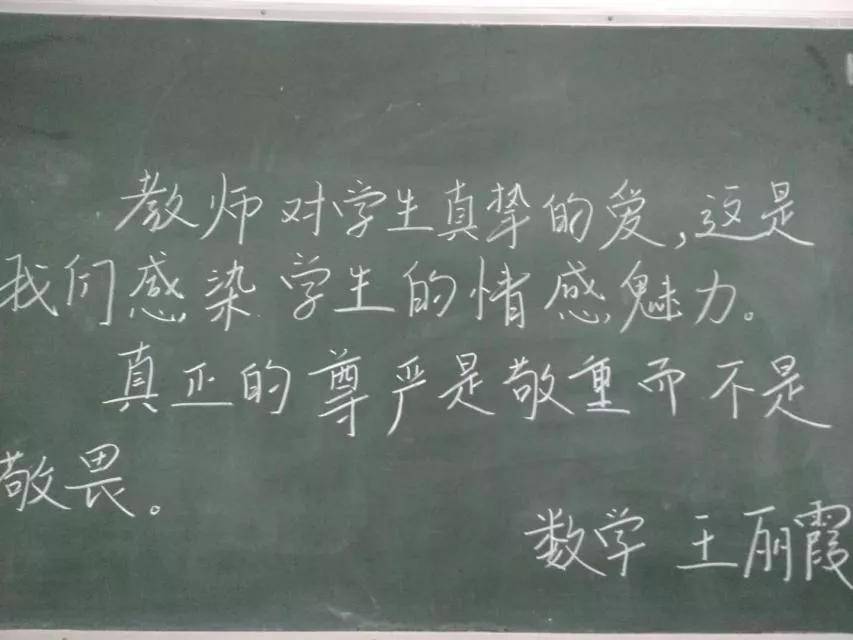 教师对学生真挚的爱,这是
我们感染学生的情感魅力。
真正的尊严是敬重而不是
敬畏。
数学 王丽霞